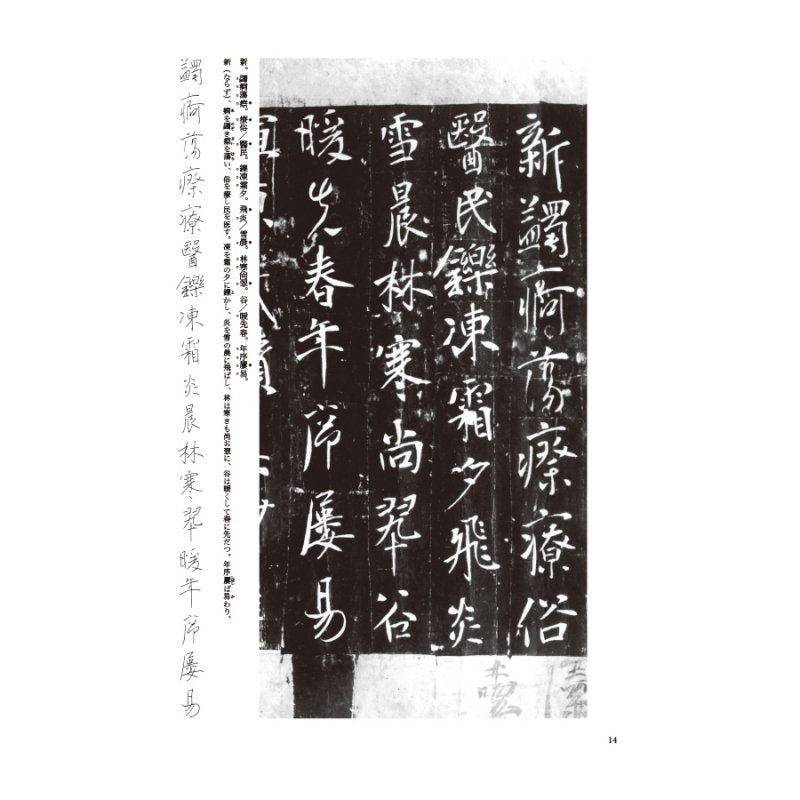 新蠲痾蕩瘵療俗
醫民鑠凍霜夕飛炎
雪晨林寒尚翠谷
暖先春年序屢易
新。蠲痾蕩瘵。療俗／醫民。鑠凍霜夕。飛炎／雪晨。林寒尚翠。谷／暖先春。年序屢易。
新（ならず）、痾を蠲き瘵を蕩い、俗を療し民を医す。凍を霜の夕に鑠かし、炎を雪の晨に飛ばし、林は寒きも尚お翠に、谷は暖くして春に先だつ。年序屢ば易わり、
蠲痾蕩瘵療醫鑠凍霜炎晨林寒翠暖年序屢易
14